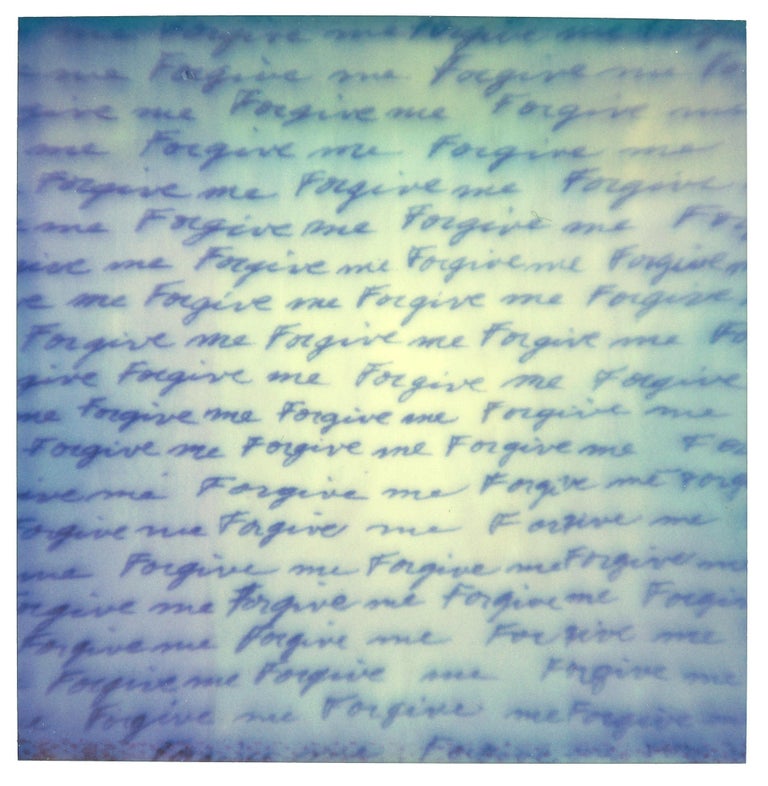 Forgive me Forgive me
me Forgive me Forgive me
give me Forgive me Forgive me
me Forgive me Forgive me
Forgive me Forgive me Forgive
me Forgive me Forgive me For
give me Forgive me Forgive me Forgive m
e me Forgive me Forgive me Forgive
Forgive me Forgive me Forgive me Fo
give Forgive me Forgive me Forgive
me Forgive me Forgive me Forgive me
Forgive me Forgive me Forgive me For
ive me Forgive me Forgive me Forg
Forgive me Forgive me Forgive me
me Forgive me Forgive me Forgive me
Forgive me Forgive me Forgive me Forgiv
Forgive me Forgive me Forgive me
Forgive me Forgive me Forgive me
e Forgive me Forgive me Forgive me
me Forgive me